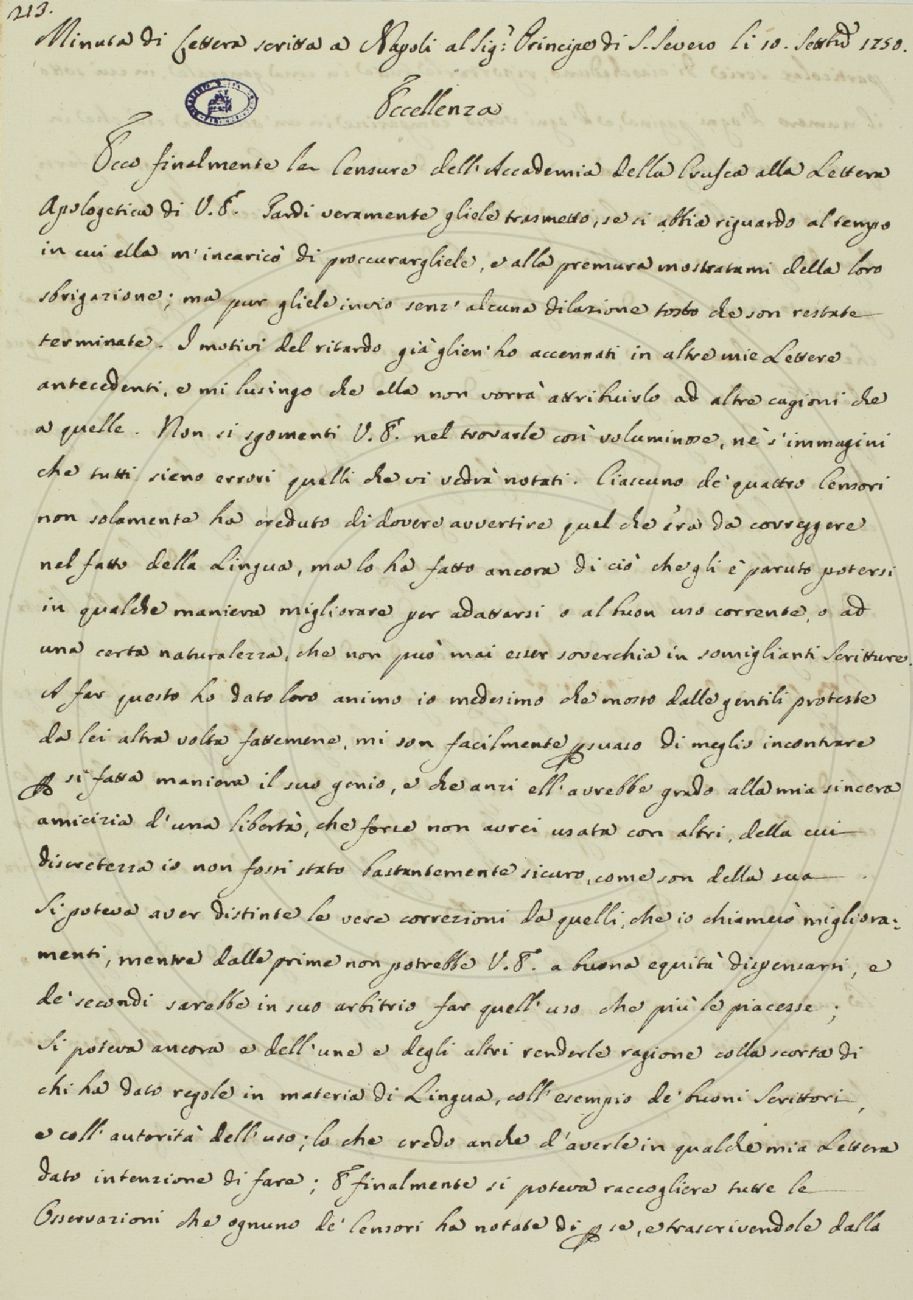 213.
Minuta di Lettera scritta a Napoli al Sig.r Principe di S. Severo li 10. Settre 1750.
Eccellenza
Ecco finalmente le Censure dell'Accademia della Crusca alla Lettera
Apologetica di V. E. Tardi veramente gliele trasmetto, se si abbia riguardo al tempo
in cui ella m'incaricò di proccurargliele, e alla premura mostratami della loro
sbrigazione; ma pur gliele invio senz'alcuna dilazione tosto che son restate
terminate. I motivi del ritardo già glien'ho accennati in altre mie Lettere
antecedenti, e mi lusingo che ella non vorrà attribuirlo ad altre cagioni che
a quelle. Non si sgomenti V. E. nel trovarle così voluminose, nè s'immagini
che tutti sieno errori quelli che vi vedrà notati. Ciascuno de' quattro Censori
non solamente ha creduto di dovere avvertire quel che v'era da correggere
nel fatto della Lingua, ma lo ha fatto ancora di ciò che gli è paruto potersi
in qualche maniera migliorare per adattarsi o al buon uso corrente, o ad
una certa naturalezza, che non può mai esser soverchia in somiglianti Scritture.
A far questo ho dato loro animo io medesimo che mosso dalle gentili proteste
da lei altra volta fattemene, mi son facilmente ꝑsuaso di meglio incontrare
ꝑ sì fatta maniera il suo genio, e che anzi ell'avrebbe grado alla mia sincera
amicizia d'una libertà, che forse non avrei usata con altri, della cui
discretezza io non fossi stato bastantemente sicuro, come son della sua.
Si poteva aver distinte le vere correzioni da quelli, che io chiamerò migliora-
menti, mentre dalle prime non potrebbe V. E. a buona equità dispensarsi, e
de' secondi sarebbe in suo arbitrio far quell'uso che più le piacesse;
Si poteva ancora e dell'une e degli altri renderle ragione colla scorta di
chi ha dato regole in materia di Lingua, coll'esempio de' buoni Scrittori,
e coll'autorità dell'uso; lo che credo anche d'averle in qualche mia Lettera
dato intenzione di fare; E finalmente si poteva raccogliere tutte le
Osservazioni che ognuno de' Censori ha notate di ꝑ se, e trascrivendole dalla